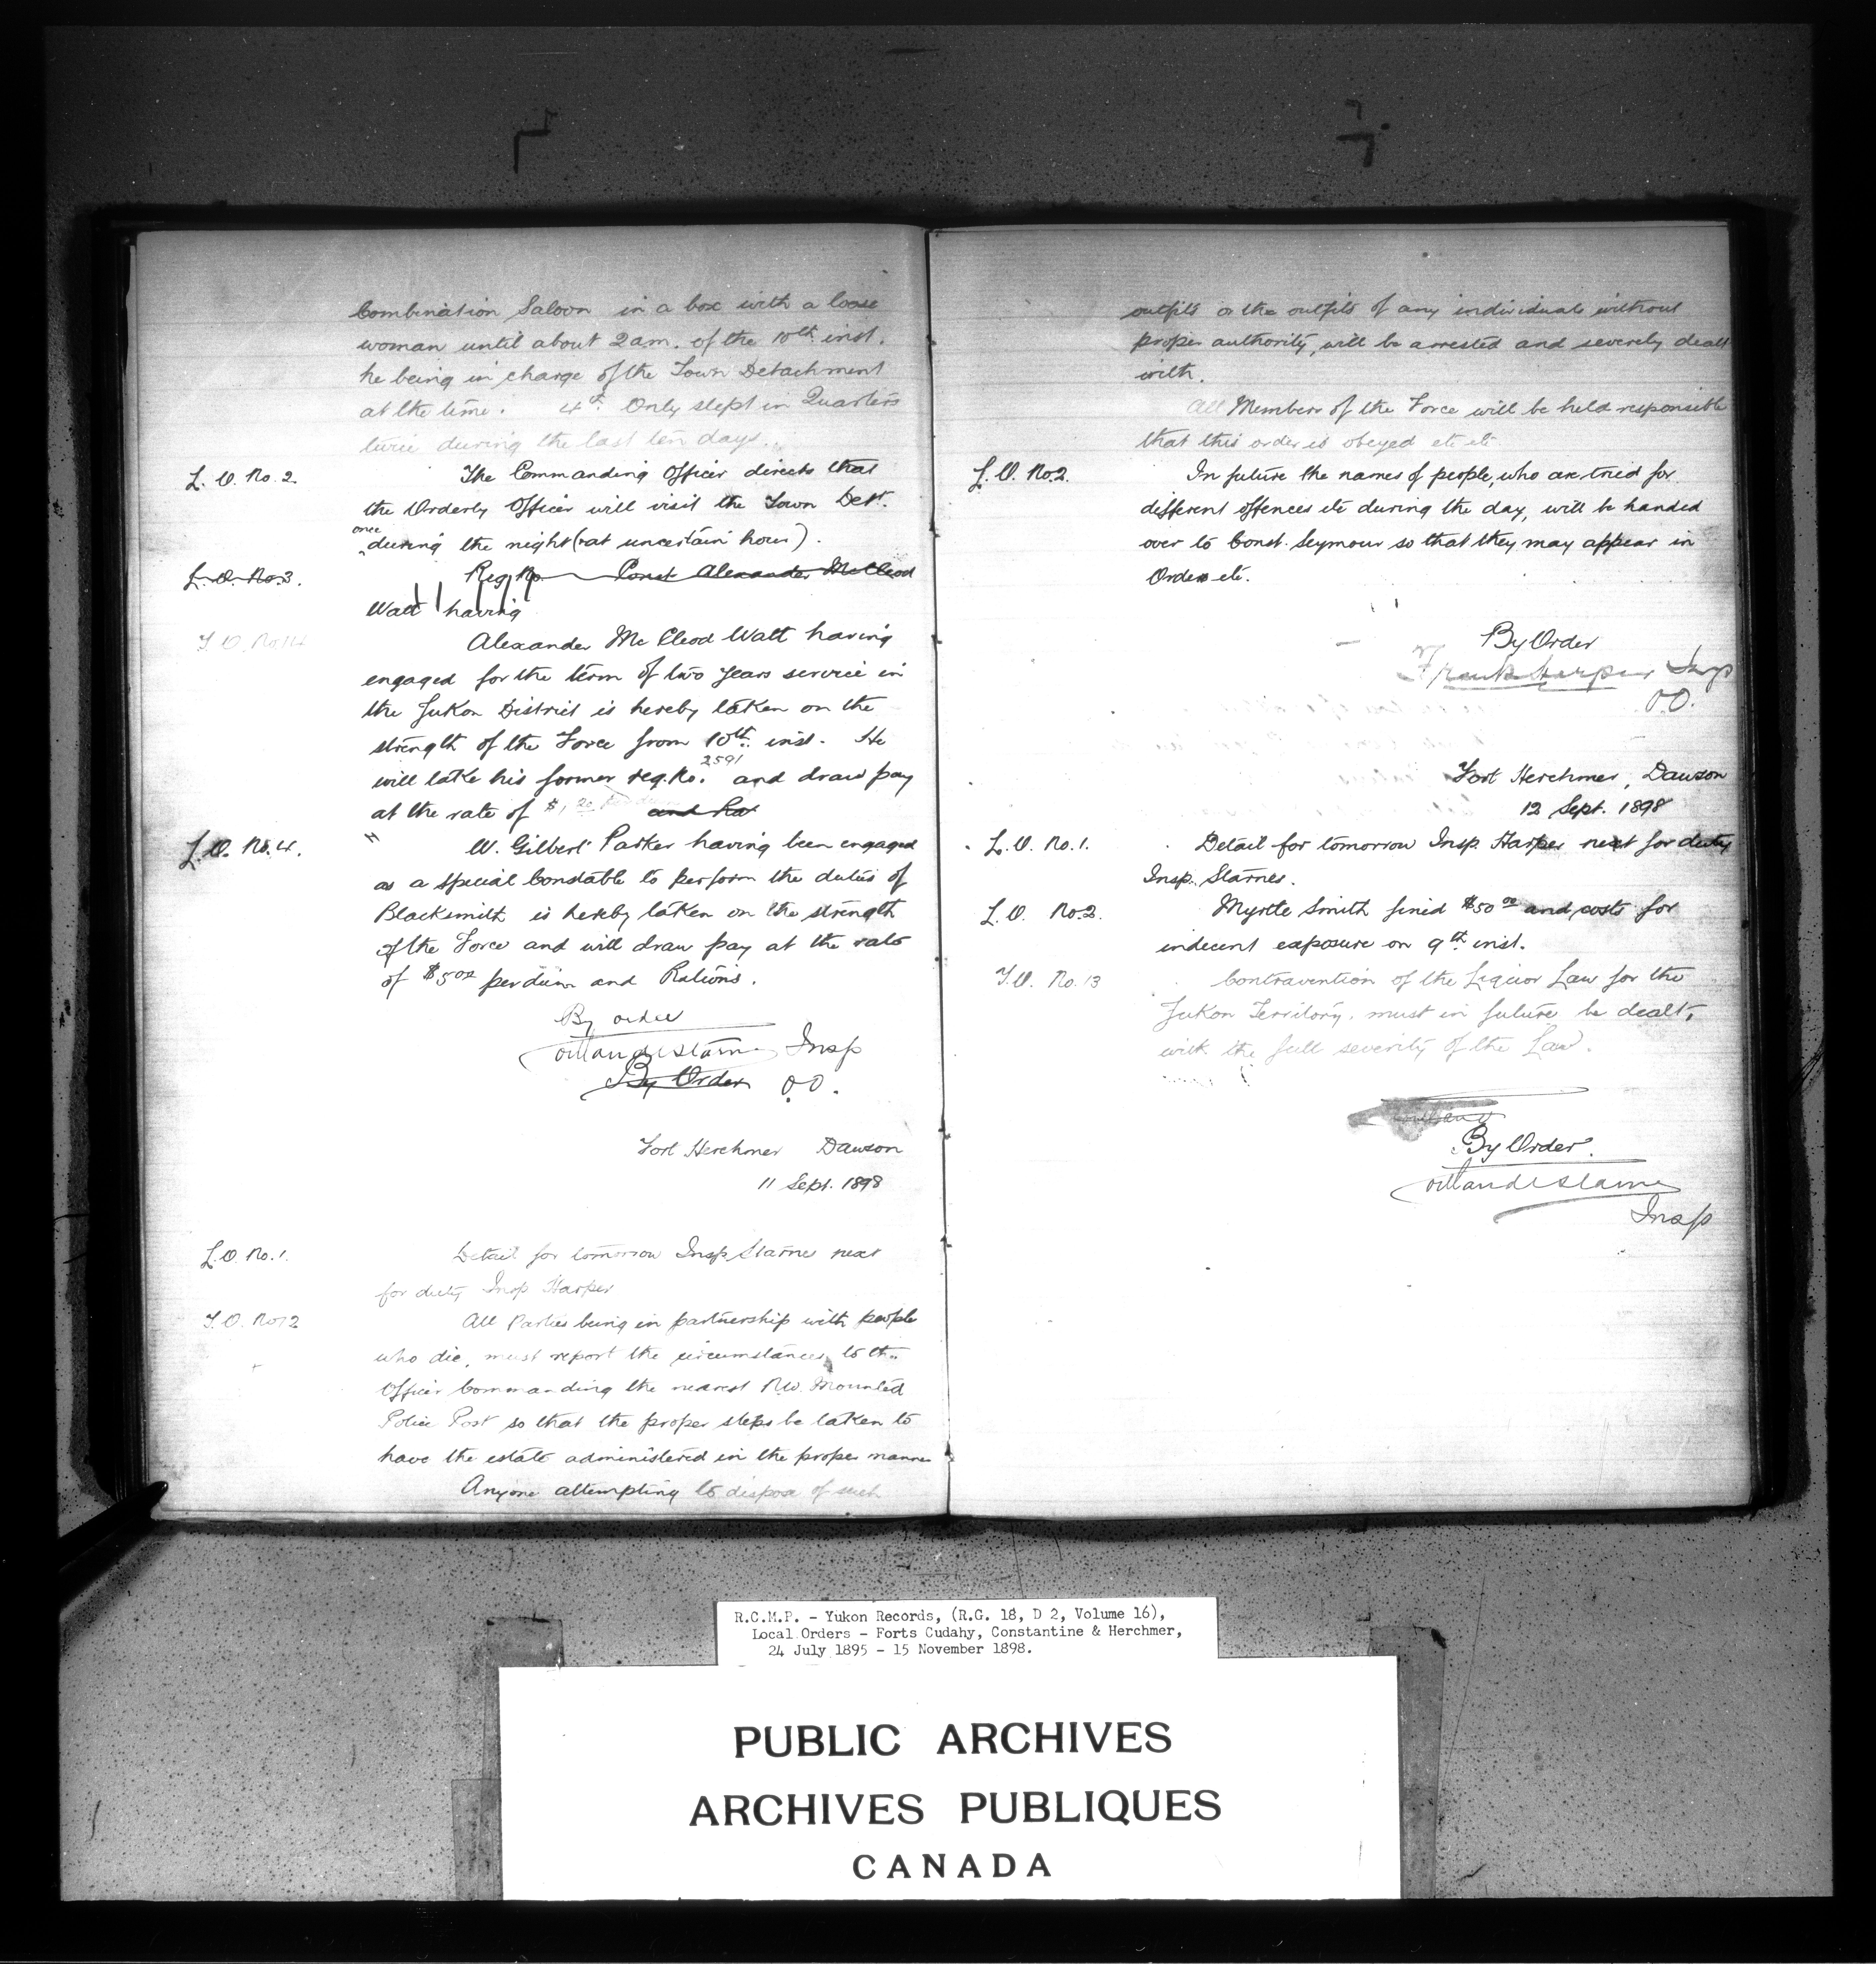 Combination Saloon in a box with a loose
woman until about 2 am. of the 10th inst.
he being in charge of the Town Detachment
at the time. 4th. Only slept in Quarters
twice during the last ten days.
L. O. No. 2. The Commanding Officer directs that
the Orderly Officer will visit the Town Dett.
once during the night (at uncertain hours).
L. O. No. 3. Reg. No. Const Alexander McCleod
Watt having
Alexander Mc Cleod Watt having
engaged for the term of two years service in
the Yukon District is hereby taken on the
strength of the Force from 10th inst. He
will take his former reg. No. 2591 and draw pay
at the rate of $1. and Ra
L. O. No. 4. W. Gilbert Parker having been engaged
as a special Constable to perform the duties of
Blacksmith is hereby taken on the strength
of the Force and will draw pay at the rate
of $5 00 per diem and Rations.
By order
Starnes Insp
By Order O.O.
Fort Herchmer Dawson
11 Sept. 1898
L. O. No. 1. Detail for tomorrow Insp Starnes next
for duty Insp Harper
All Parties being in partnership with people
who die, must report the circumstances to the
Officer Commanding the nearest N.W. Mounted
Police Post so that the proper steps be taken to
have the estate administered in the proper manner
Anyone attempting to dispose of such
outfits or the outfits of any individuals without
proper authority, will be arrested and severely dealt
with.
All Members of the Force will be held responsible
that this order is obeyed etc etc
L. O. No. 2. In future the names of people, who are tried for
different offences etc during the day, will be handed
over to Const. Seymour so that they may appear in
Orders etc.
By Order
Frank Harper Insp
O.O.
Fort Herchmer, Dawson
12 Sept. 1898
L. O. No. 1. Detail for tomorrow Insp. Harper next for duty
Insp. Starnes.
L. O. No. 2. Myrtle Smith fined $50 00 and costs for
indecent exposure on 9th inst.
No. 13 Contravention of the Liquor Law for the
Yukon Territory, must in future be dealt,
with the full severity of the Law.
By Order.
Starnes
Insp
R.C.M.P. - Yukon Records, (R.G. 18, D 2, Volume 16),
Local Orders - Forts Cudahy, Constantine & Herchmer,
24 July 1895 - 15 November 1898.
PUBLIC ARCHIVES
ARCHIVES PUBLIQUES
CANADA